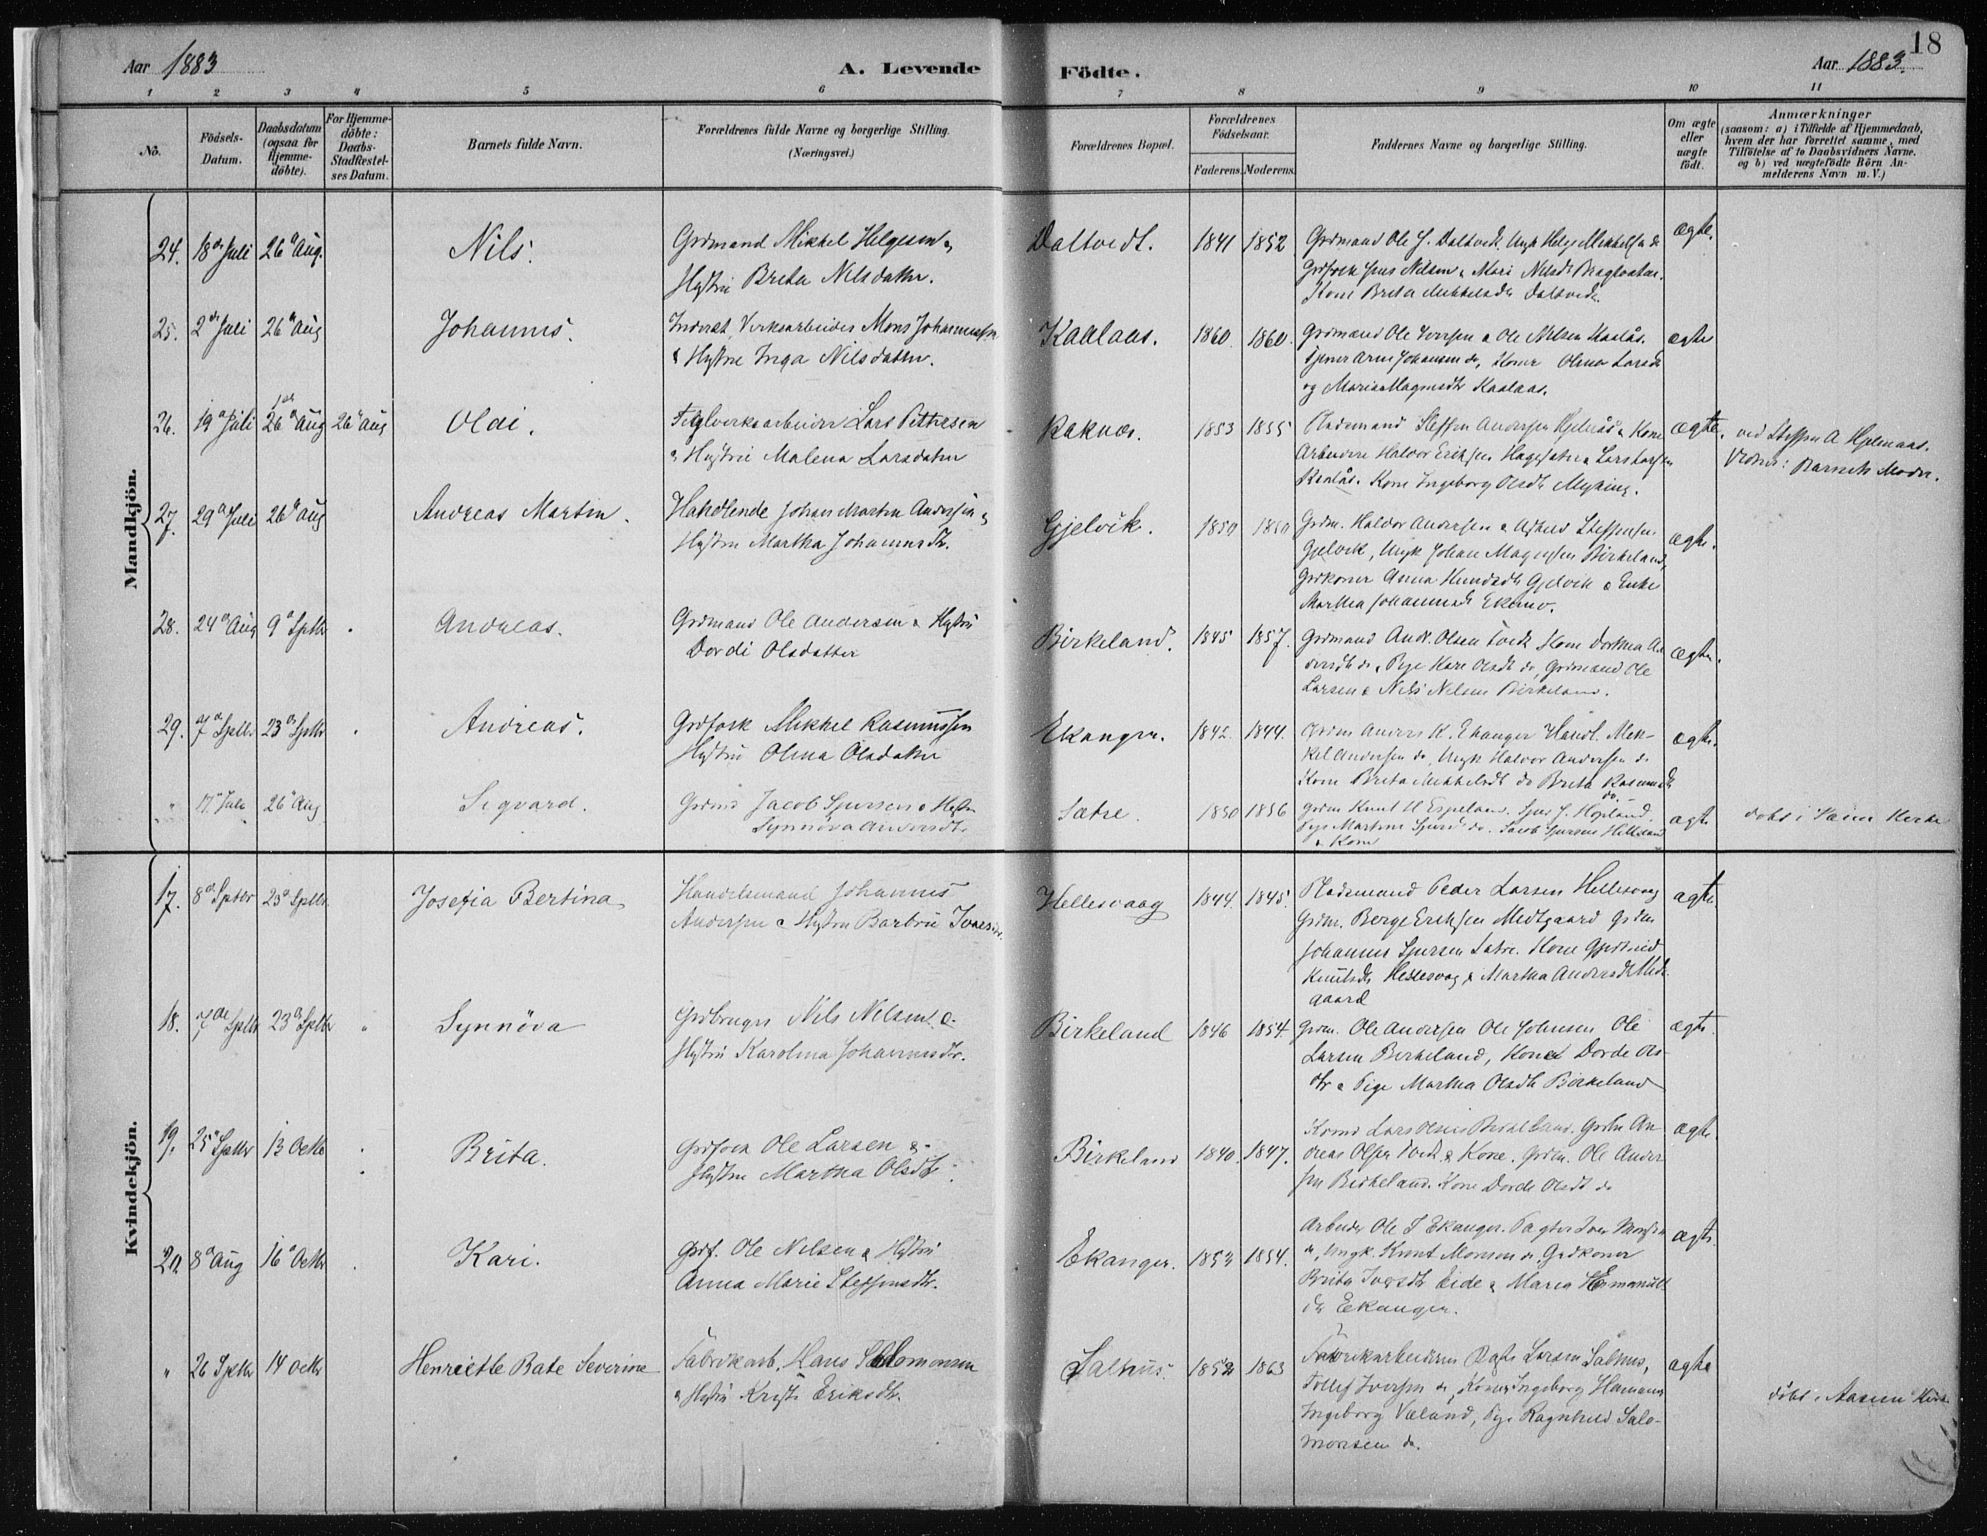 18
Aar 1883
A. Levende
Födte.
Aar 1883.
1 2 3 4 5 6 7 8 9 10 11
No.
Födsels-
Datum.
Daabsdatum
(ogsaa for
Hjemme-
döbte).
For Hjemme-
döbte:
Daabs-
Stadfæstel-
ses Datum.
Barnets fulde Navn.
Forældrenes fulde Navne og borgerlige Stilling.
(Næringsvei.)
Forældrenes Bopæl.
Forældrenes
Födselsaar.
Faderens. Moderens.
Faddernes Navne og borgerlige Stilling.
Om ægte
eller
uægte
födt.
Anmærkninger
(saasom: a) i Tilfælde af Hjemmedaab,
hvem der har forrettet samme, med
Tilföielse af to Daabsvidners Navne.
og b) ved uægtefödte Börn An-
melderens Navn m. V.)
Mandkjön.
24. 18de Juli 26de Aug. Nils.
Grdmand Mikkel Helgesen &
Hustru Brita Nilsdatter.
Daltvedt. 1841 1852
Grdmand Ole J. Daltvedt, Ungk Helge Mikkelsen do
Kone Brita Mikkelsdtr Daltvedt.
ægte.
25. 2de Juli 26de Aug Johannes.
Inderst, Verksarbeider Mons Johannessen
& Hustru Inga Nilsdatter.
Kaalaas. 1860. 1860.
Grdmand Ole Iversen & Ole Nilsen Kaalås.
Tjener Arne Johansen do, Koner Olina Larsdtr
og Maria Magnesdtr Kaalaas.
ægte
26. 19de Juli 26de Aug 26de Aug Oldi.
Teglverksarbeider Lars Pettersen
& Hustru Malena Larsdatter
Raknæs. 1853 1855
Pladsmand Steffen Andersen Hjelmås & Kone
Arbeidere Halvor Eriksen & Lars Larsen
Kaalås. Kone Ingeborg Olsdtr Myking.
ægte.
ved Steffen A Hjelmaas.
Vidner: Barnets Moder.
27. 29de Juli 26de Aug Andreas Martin.
Handlende Johan Martin Andersen &
Hustru Martha Johannesdtr.
Gjelvik. 1850 1850
Grdm. Haldor Andersen & Steffensen
Gjelvik, Ungk Johan Magnesen Birkeland,
Grdkoner Anna Knudsdtr Gjelvik & Enke
Martha Johannesdtr Ekemo.
ægte.
28. 24de Aug 9de Septbr Andreas.
Grdmand Ole Andersen & Hustru
Dordi Olsdatter
Birkeland. 1845 1857.
Grdmand Andr. Olsen Tvedt, Kone Dorthea An-
dersdtr do, Pige Kari Olsdtr do, Grdmand Ole
Larsen & Nils Nilsen Birkeland.
ægte.
29. 7de Septbr 23de Septbr Andreas.
Grdfolk Mikkel Rasmussen
Hustru Olina Olsdatter
Ekanger. 1842. 1844.
Grdm Anders K. Ekanger Handl. Mik-
kel Andersen do, Ungk Haldor Andersen do
Kone Brita Mikkelsdtr do Brita Rasmusdtr
do.
ægte.
" 17de Juli 26de Aug Sigvard.
Grdmd Jacob Sjursen & Hustru
Synnöva Andersdtr.
Sætre. 1850 1856
Grdm Knut H Espeland. Sjur J. Hopland.
Pige Martine Sjursd do. Jacob Sjursen Helland
& Kone
ægte
döbt i Kirke
Kvindekjön.
17. 8de Septbr 23de Septbr Josefia Bertina
Handelsmand Johannes
Andersen & Hustru Barbru Iversdtr.
Hellesvaag 1844. 1845.
Pladsmand Peder Larsen Hellesvaag
Grdm. Berge Eriksen Midtgaard Grdm
Johannes Sjursen Sætre. Kone
Knutsdtr Hellesvag & Martha Andersdtr Midt-
gaard
ægte.
18. 7de Septbr 23de Septbr " Synnöva
Grdbruger Nils Nilsen &
Hustru Karolina Johannesdtr.
Birkeland 1846 1854.
Grdm. Ole Andersen Ole Johnsen Ole
Larsen Birkeland, Kone Dorde Ols-
dtr & Pige Martha Olsdtr Birkeland
ægte.
19. 25de Septbr 13 Octbr Brita.
Grdfolk Ole Larsen &
Hustru Martha Olsdtr.
Birkeland 1840. 1847.
Kone Lars Olsens Birkeland. Grdm An-
dreas Olsen Tvedt & Kone. Grdm. Ole Ander-
sen Birkeland. Kone Dorde Olsdtr do
ægte.
20. 8de Aug 16de Octbr Kari.
Grdf. Ole Nilsen & Hustru
Anna Marie Steffensdtr.
Ekanger. 1853 1854.
Arbeider Ole T Ekanger. Pagter Iver Monsen
do, Ungk. Knut Monsen do, Grdkoner
Brita Iversdtr Eide & Maria Hermansd
do Ekanger.
ægte.
" 26 Septbr 14 Octbr Henriette Bate Severine
Fabrikarb. Hans Salomonsen
& Hustru Kristi Eriksdtr.
Salhus. 1852 1863
Fabrikarbeiderne Lars Larsen Salhus,
Tollef Iversen do, Koner Ingeborg Hamann
Ingeborg Væland, Pige Ragnhild Salo-
monsen do.
ægte
döbt i Aasene Kirke